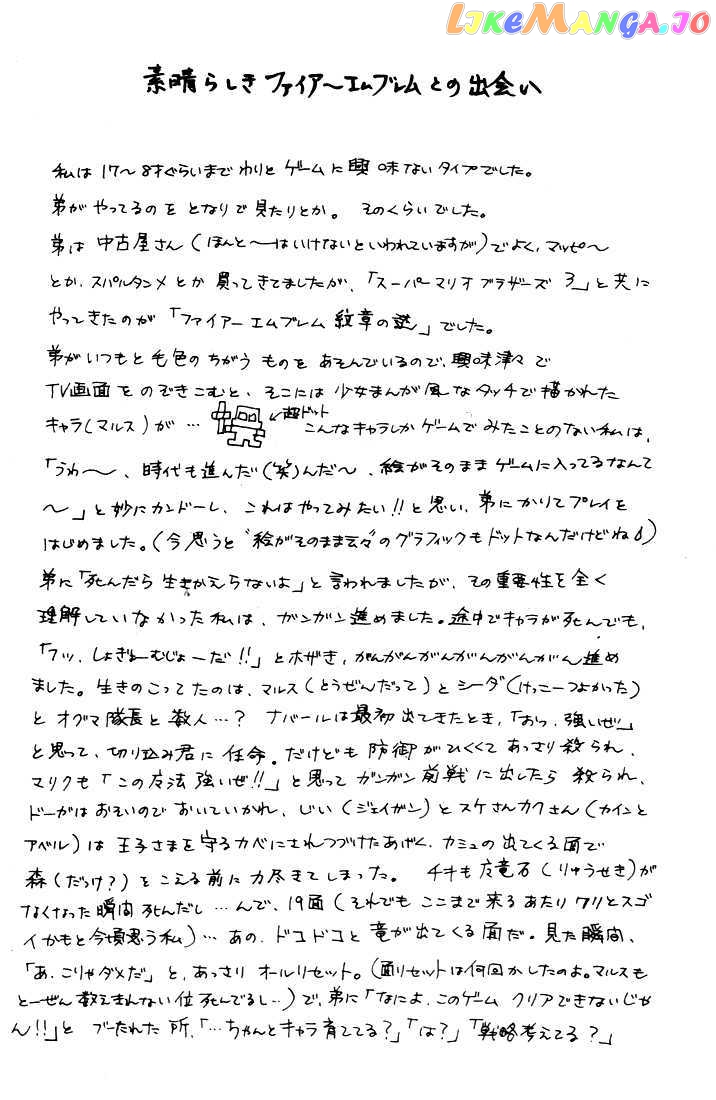 LIKEMANGA.IO
素晴らしき ファイアーエムブレムとの出会い
私は17〜8才ぐらいまで わりと ゲームに興味ないタイプでした。
弟が やってるのを となりで見たりとか。 そのくらいでした。
弟は 中古屋さん(ほんと〜はいけないといわれていますが)でよく、マッピ〜
とか、スパルタンXとか 買ってきてましたが、「スーパーマリオブラザーズ 3」と共に
やってきたのが「ファイアーエムブレム 紋章の謎」でした。
弟がいつもと毛色のちがう ものを あそんでいるので、興味津々で
TV画面をのぞきこむと、そこには 少女まんが風なタッチで描かれた
キャラ(マルス)が… ←超ドット こんなキャラしかゲームでみたことのない私は、
「うわ〜、時代も進んだ(笑)んだ〜、絵がそのまま ゲームに入ってるなんて
〜」と妙にカンドーし、これはやってみたい!!と思い、弟にかりてプレイを
はじめました。(今思うと"絵がそのまま云々"のグラフィックもドットなんだけどね)
弟に「死んだら 生きかえらないよ」と言われましたが、その重要性を全く
理解していなかった私は、ガンガン進めました。途中でキャラが死んでも、
「フッ、しょぎょーむじょーだ!!」とホザき、がんがんがんがんがんがん進め
ました。生きのこってたのは、マルス(とうぜんだって)とシーダ(けっこーつよかった)
と オグマ隊長と数人…? ナバールは最初出てきたとき、「おっ、強いぜ」
と思って、切り込み君に任命。だけども 防御がひくくて あっさり殺られ、
マリクも「この魔法 強いぜ!!」と思って ガンガン前戦に出したら 殺られ、
ドーガはおそいので おいていかれ、じい(ジェイガン)とスケさんカクさん(カインと
アベル)は 王子さまを守るカベにされつづけたあげく、カミュの出てくる面で
森(だっけ?)をこえる前に力尽きてしまった。 チキも魔竜石(りゅうせき)が
なくなった瞬間死んだし…んで、19面(それでも ここまで来るあたり ワリとスゴ
イかもと今頃思う私)…あの、ドコドコと竜が出てくる面だ。見た瞬間、
「あ、こりゃダメだ」と、あっさり オールリセット。(面リセットは何回かしたのよ。マルスも
と〜ぜん数えきれない位死んでるし…)で、弟に「なによ、このゲーム クリアできないじゃ
ん!!」と ブーたれた所、「…ちゃんとキャラ育ててる?」「は?」「戦略考えてる?」